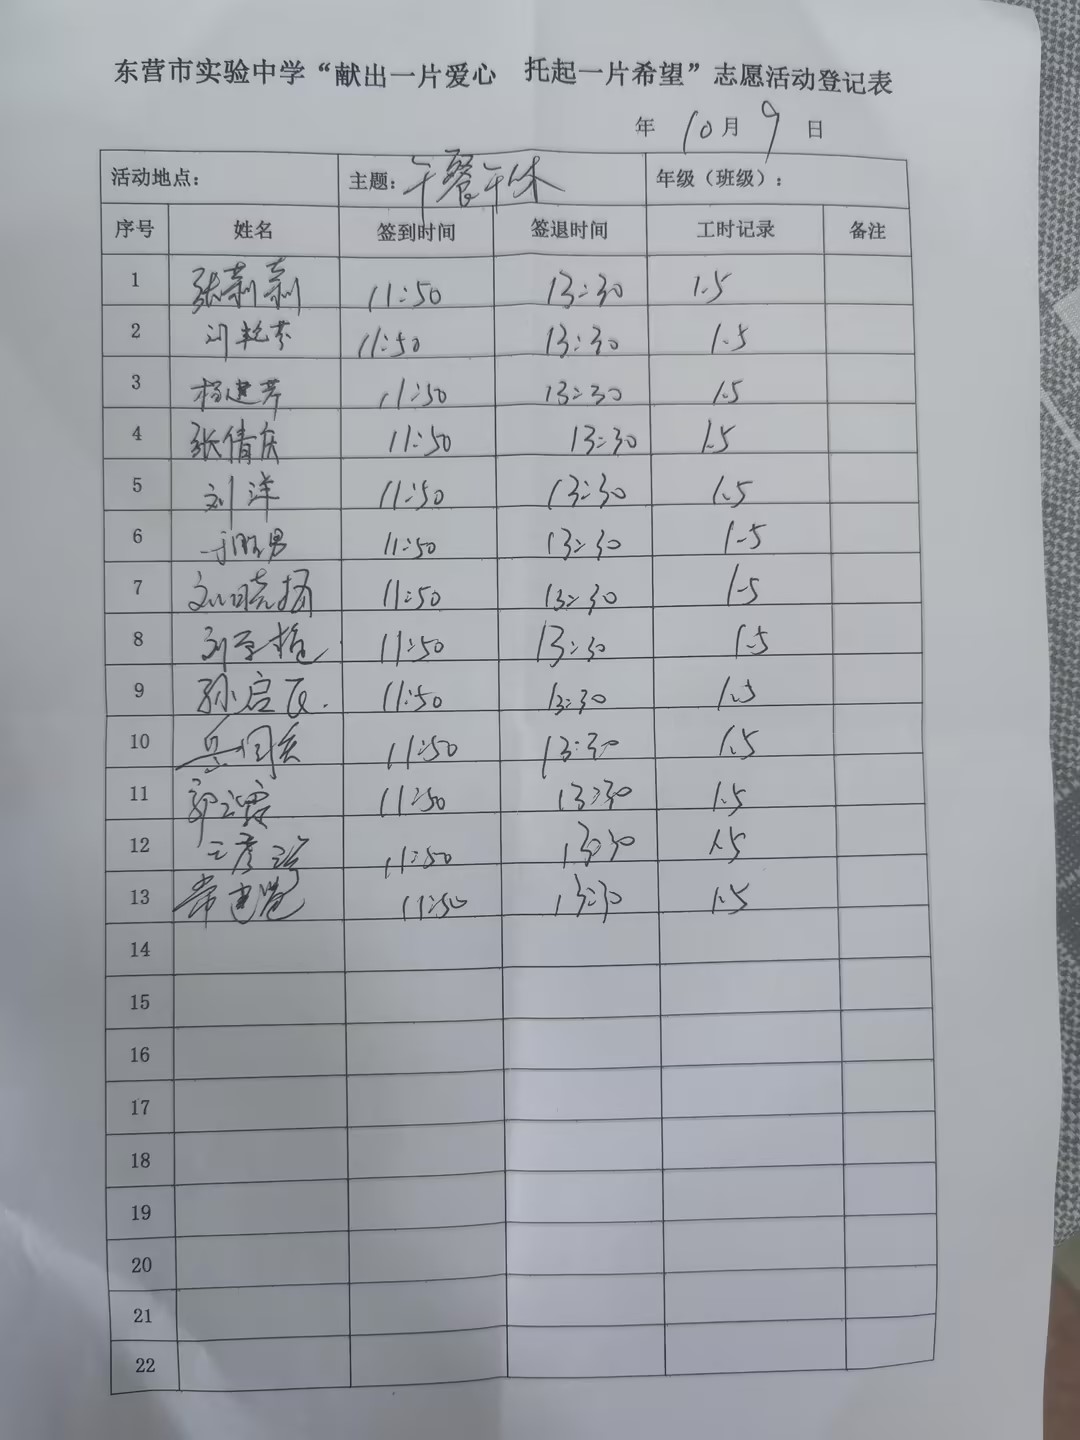 东营市实验中学“献出一片爱心 托起一片希望”志愿活动登记表
年 10月 9 日
活动地点： 主题：午餐午休 年级（班级）：
序号 姓名 签到时间 签退时间 工时记录 备注
1 张莉莉 11:50 13:30 1.5
2 刘艳芬 11:50 13:30 1.5
3 杨建芳 11:50 13:30 1.5
4 张倩 11:50 13:30 1.5
5 刘洋 11:50 13:30 1.5
6 于胜男 11:50 13:30 1.5
7 刘晓扬 11:50 13:30 1.5
8 11:50 13:30 1.5
9 孙启 11:50 13:30 1.5
10 11:50 13:30 1.5
11 郭 11:50 13:30 1.5
12 王彦 11:50 13:30 1.5
13 常建 11:50 13:30 1.5
14
15
16
17
18
19
20
21
22